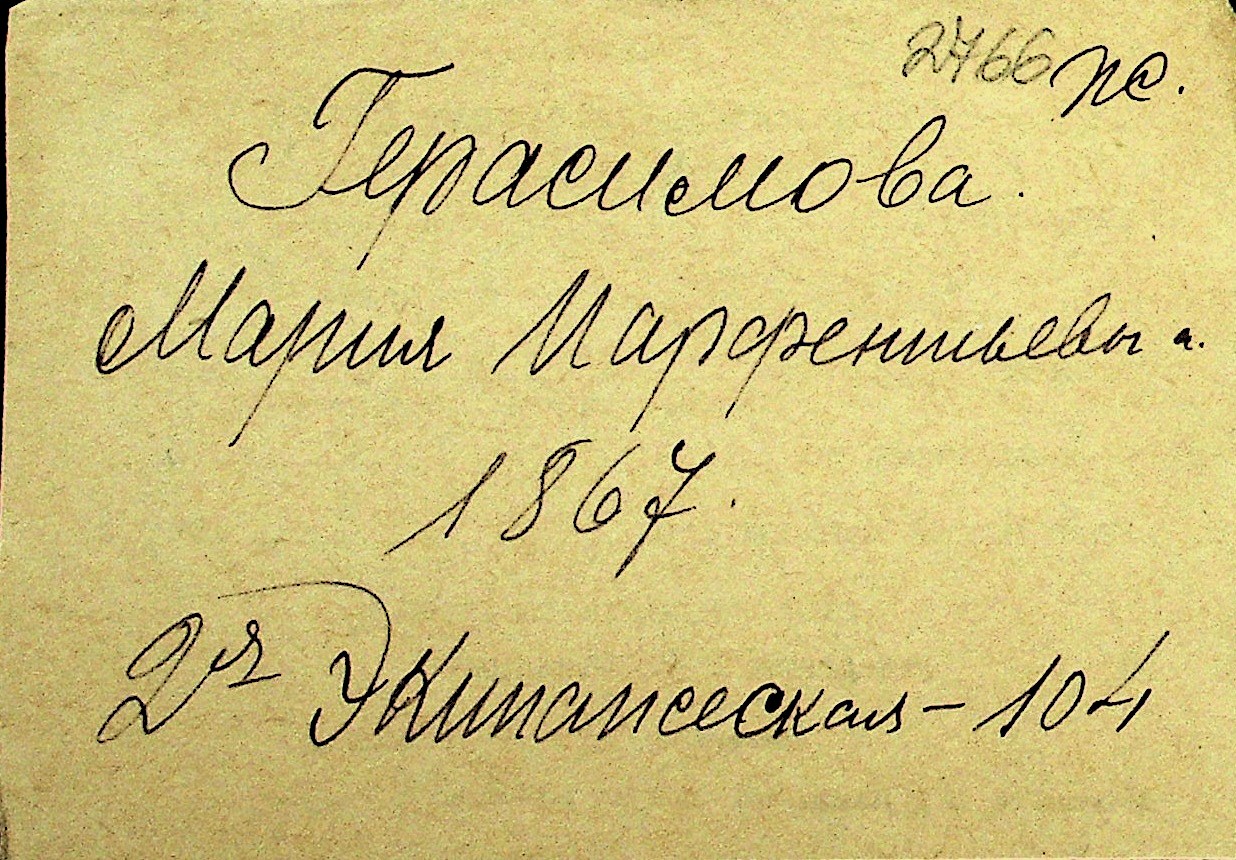 2766 пс.
Герасимова.
Мария Парфентьевна.
1867.
2я Экипажеская - 104